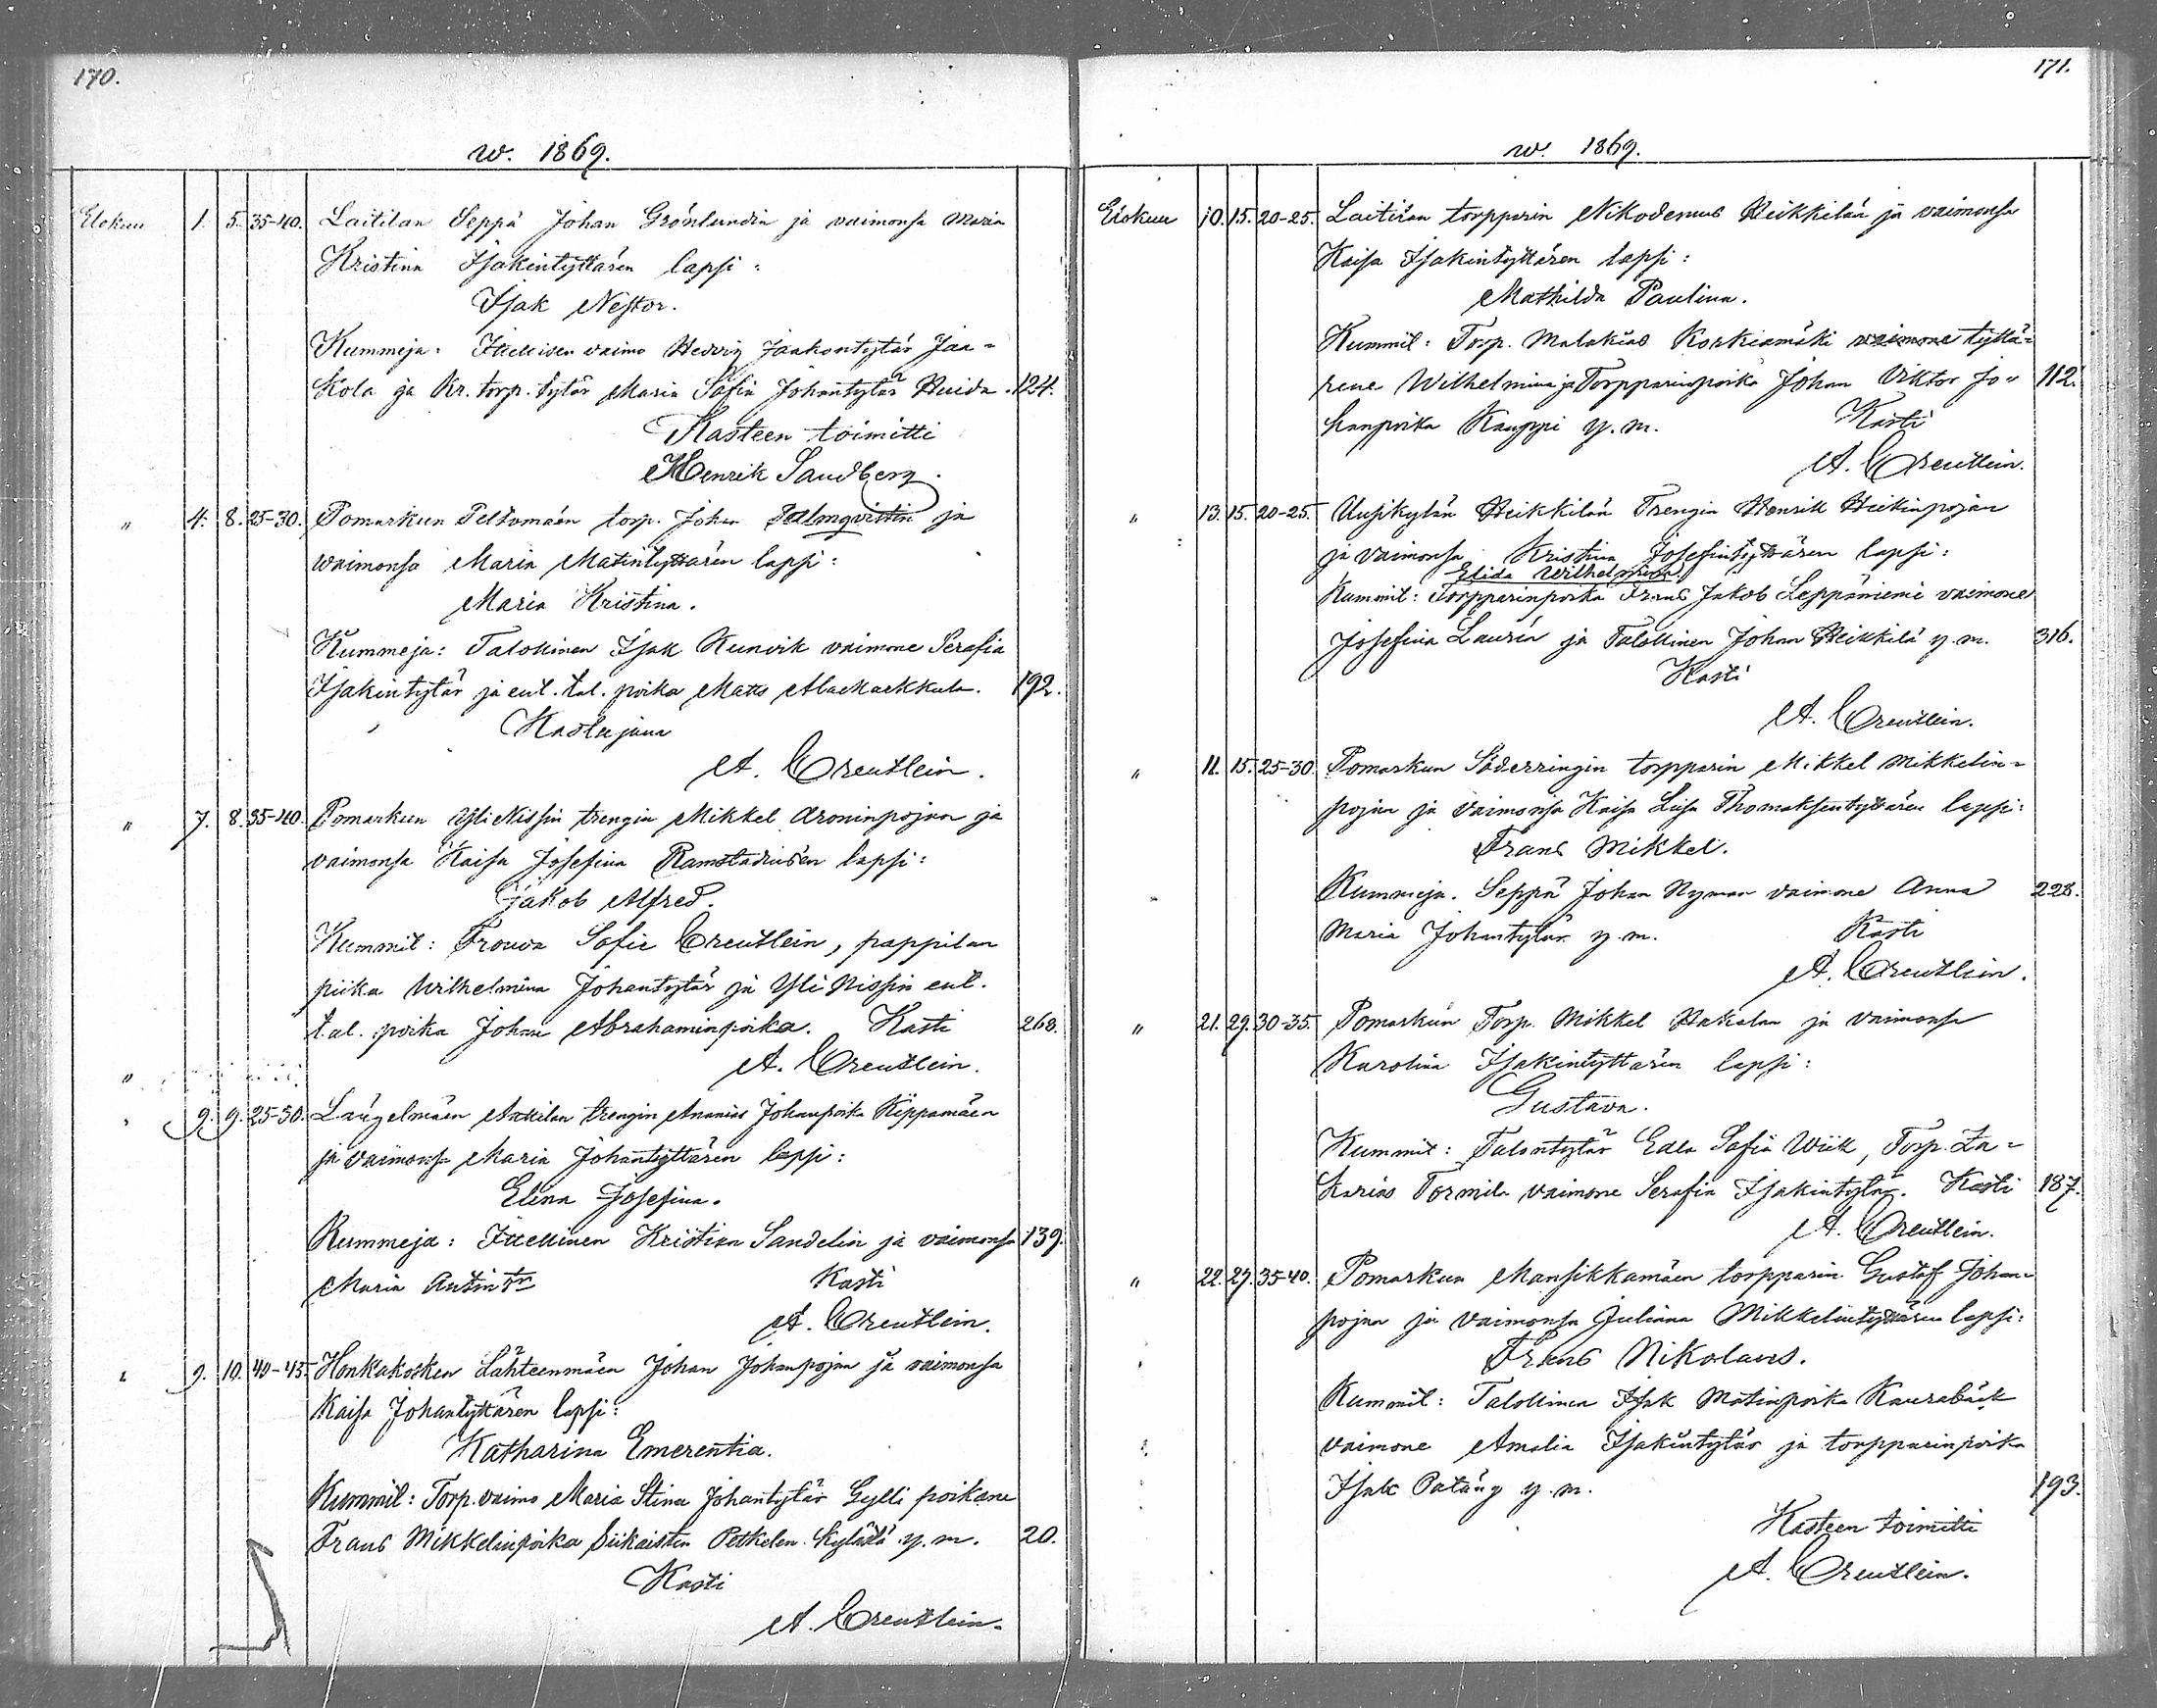 170.
w. 1869.
Elokuu 1. 5. 35-40. Laitilan Seppä Johan Grönlundin ja vaimonsa Maria
Kristina Isakintyttären lapsi:
Isak Nestor.
Kummeja: Itsellisen vaimo Hedvig Jaakontytär Jaa-
kola ja Kr. torp. tytär Maria Sofia Johantytär Huida. 124.
Kasteen toimitti
Henrik Sandberg.
" 4. 8. 25-30. Pomarkun Peltomäen torp. Johan Palmqvistin ja
waimonsa Maria Matintyttären lapsi:
Maria Kristina.
Kummeja: Talokinen Isak Kunvik vaimone Serafia
Isakintytär ja ent. tal. poika Matts AlaMarkkula. 192.
Kastajana
A. Creutlein.
" 7. 8. 35-40. Pomarkun YliNissin trengin Mikkel Aroninpojan ja
vaimonsa Kaisa Josefina Ramstadiusen lapsi:
Jakob Alfred.
Kummit: Frouva Sofie Creutlein, pappilan
piika Wilhelmina Johantytär ja Yli Nissin ent.
tal. poika Johan Abrahaminpoika. Kasti 268.
A. Creutlein.
"
9. 9. 25-30. Längelmäen Anttilan trengin Ananias Johanpoika Kippamäen
ja vaimonsa Maria Johantyttären lapsi:
Elina Josefina.
Kummeja: Itsellinen Kristian Sandelin ja vaimonsa 139.
Maria Antintr Kasti
A. Creutlein.
" 9. 10. 40-45. Honkakosken Lähteenmäen Johan Johanpojan ja vaimonsa
Kaisa Johantyttären lapsi:
Katharina Emerentia.
Kummit: Torp. vaimo Maria Stina Johantytär Gylli poikane
Frans Mikkelinpoika Siikaisten Petkelen kylästä y. m. 20.
Kasti
A. Creutlein.
171.
w. 1869.
Elokuu 10. 15. 20-25. Laitilan torpparin Nikodemus Heikkilän ja vaimonsa
Kaisa Isakintyttären lapsi:
Mathilda Paulina.
Kummit: Torp. Malakias Korkiamäki vaimone tyttä-
rene Wilhelmina ja Torpparinpoika Johan Viktor Jo- 112.
hanpoika Kauppi y. m. Kasti
A. Creutlein.
" 13. 15. 20-25. Uusikylän Heikkilän Trengin Henrik Heikinpojan
ja vaimonsa Kristina Josefintyttären lapsi:
Elida Wilhelmina.
Kummit: Torpparinpoika Frans Jakob Leppäniemi vaimone
Josefina Laurén ja Talollinen Johan Heikkilä y. m. 316.
Kasti
A. Creutlein.
" 11. 15. 25-30. Pomarkun Söderringin torpparin Mikkel Mikkelin-
pojan ja vaimonsa Kaisa Liisa Thomaksentyttären lapsi:
Frans Mikkel.
Kummeja. Seppä Johan Nyman vaimone Anna 228.
Maria Johantytär y. m. Kasti
A. Creutlein.
" 21. 29. 30-35. Pomarkun Torp. Mikkel Hakalan ja vaimonsa
Karolina Isakintyttären lapsi:
Gustava.
Kummit: Talontytär Edla Sofia Wiik, Torp. Za-
karias Tormila vaimone Serafia Isakintytär. Kasti 187.
A. Creutlein.
" 22. 29. 35-40. Pomarkun Mansikkamäen torpparin Gustaf Johan-
pojan ja vaimonsa Juliana Mikkelintyttären lapsi:
Frans Nikolaus.
Kummit: Talollinen Isak Matinpoika Kaurabäck
vaimone Amalia Isakintytär ja torpparinpoika
Isak Patäng y. m. 193.
Kasteen toimitti
A. Creutlein.